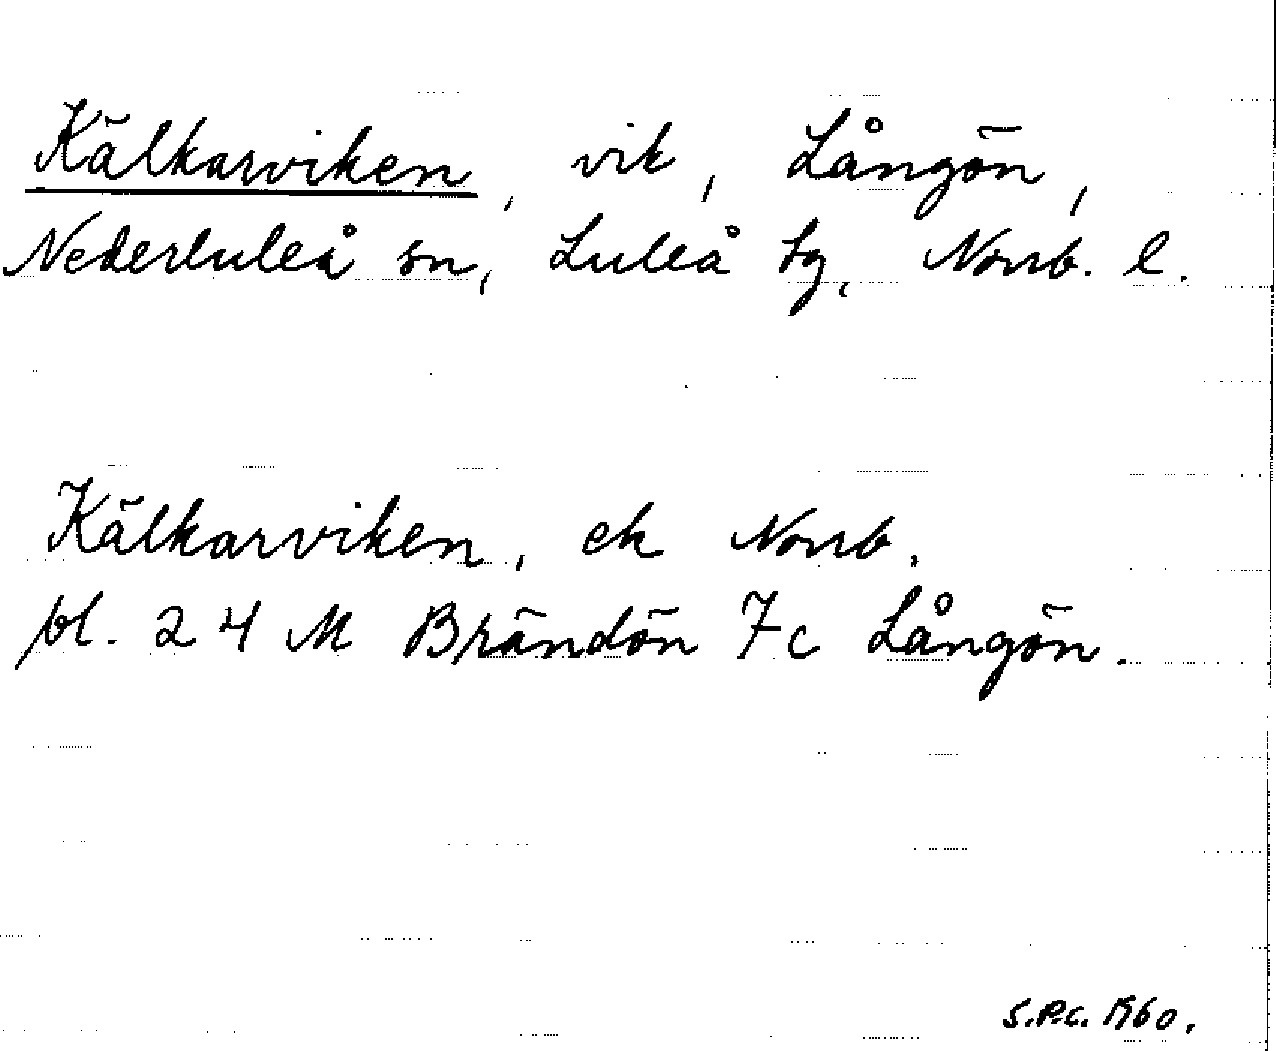 Kälkarviken, vik, Långön,
Nederluleå sn, Luleå tg, Norrb. l.
Kälkarviken, ek Norrb.
bl. 24 M Brändön 7c Långön.
S.P.C. 1960.